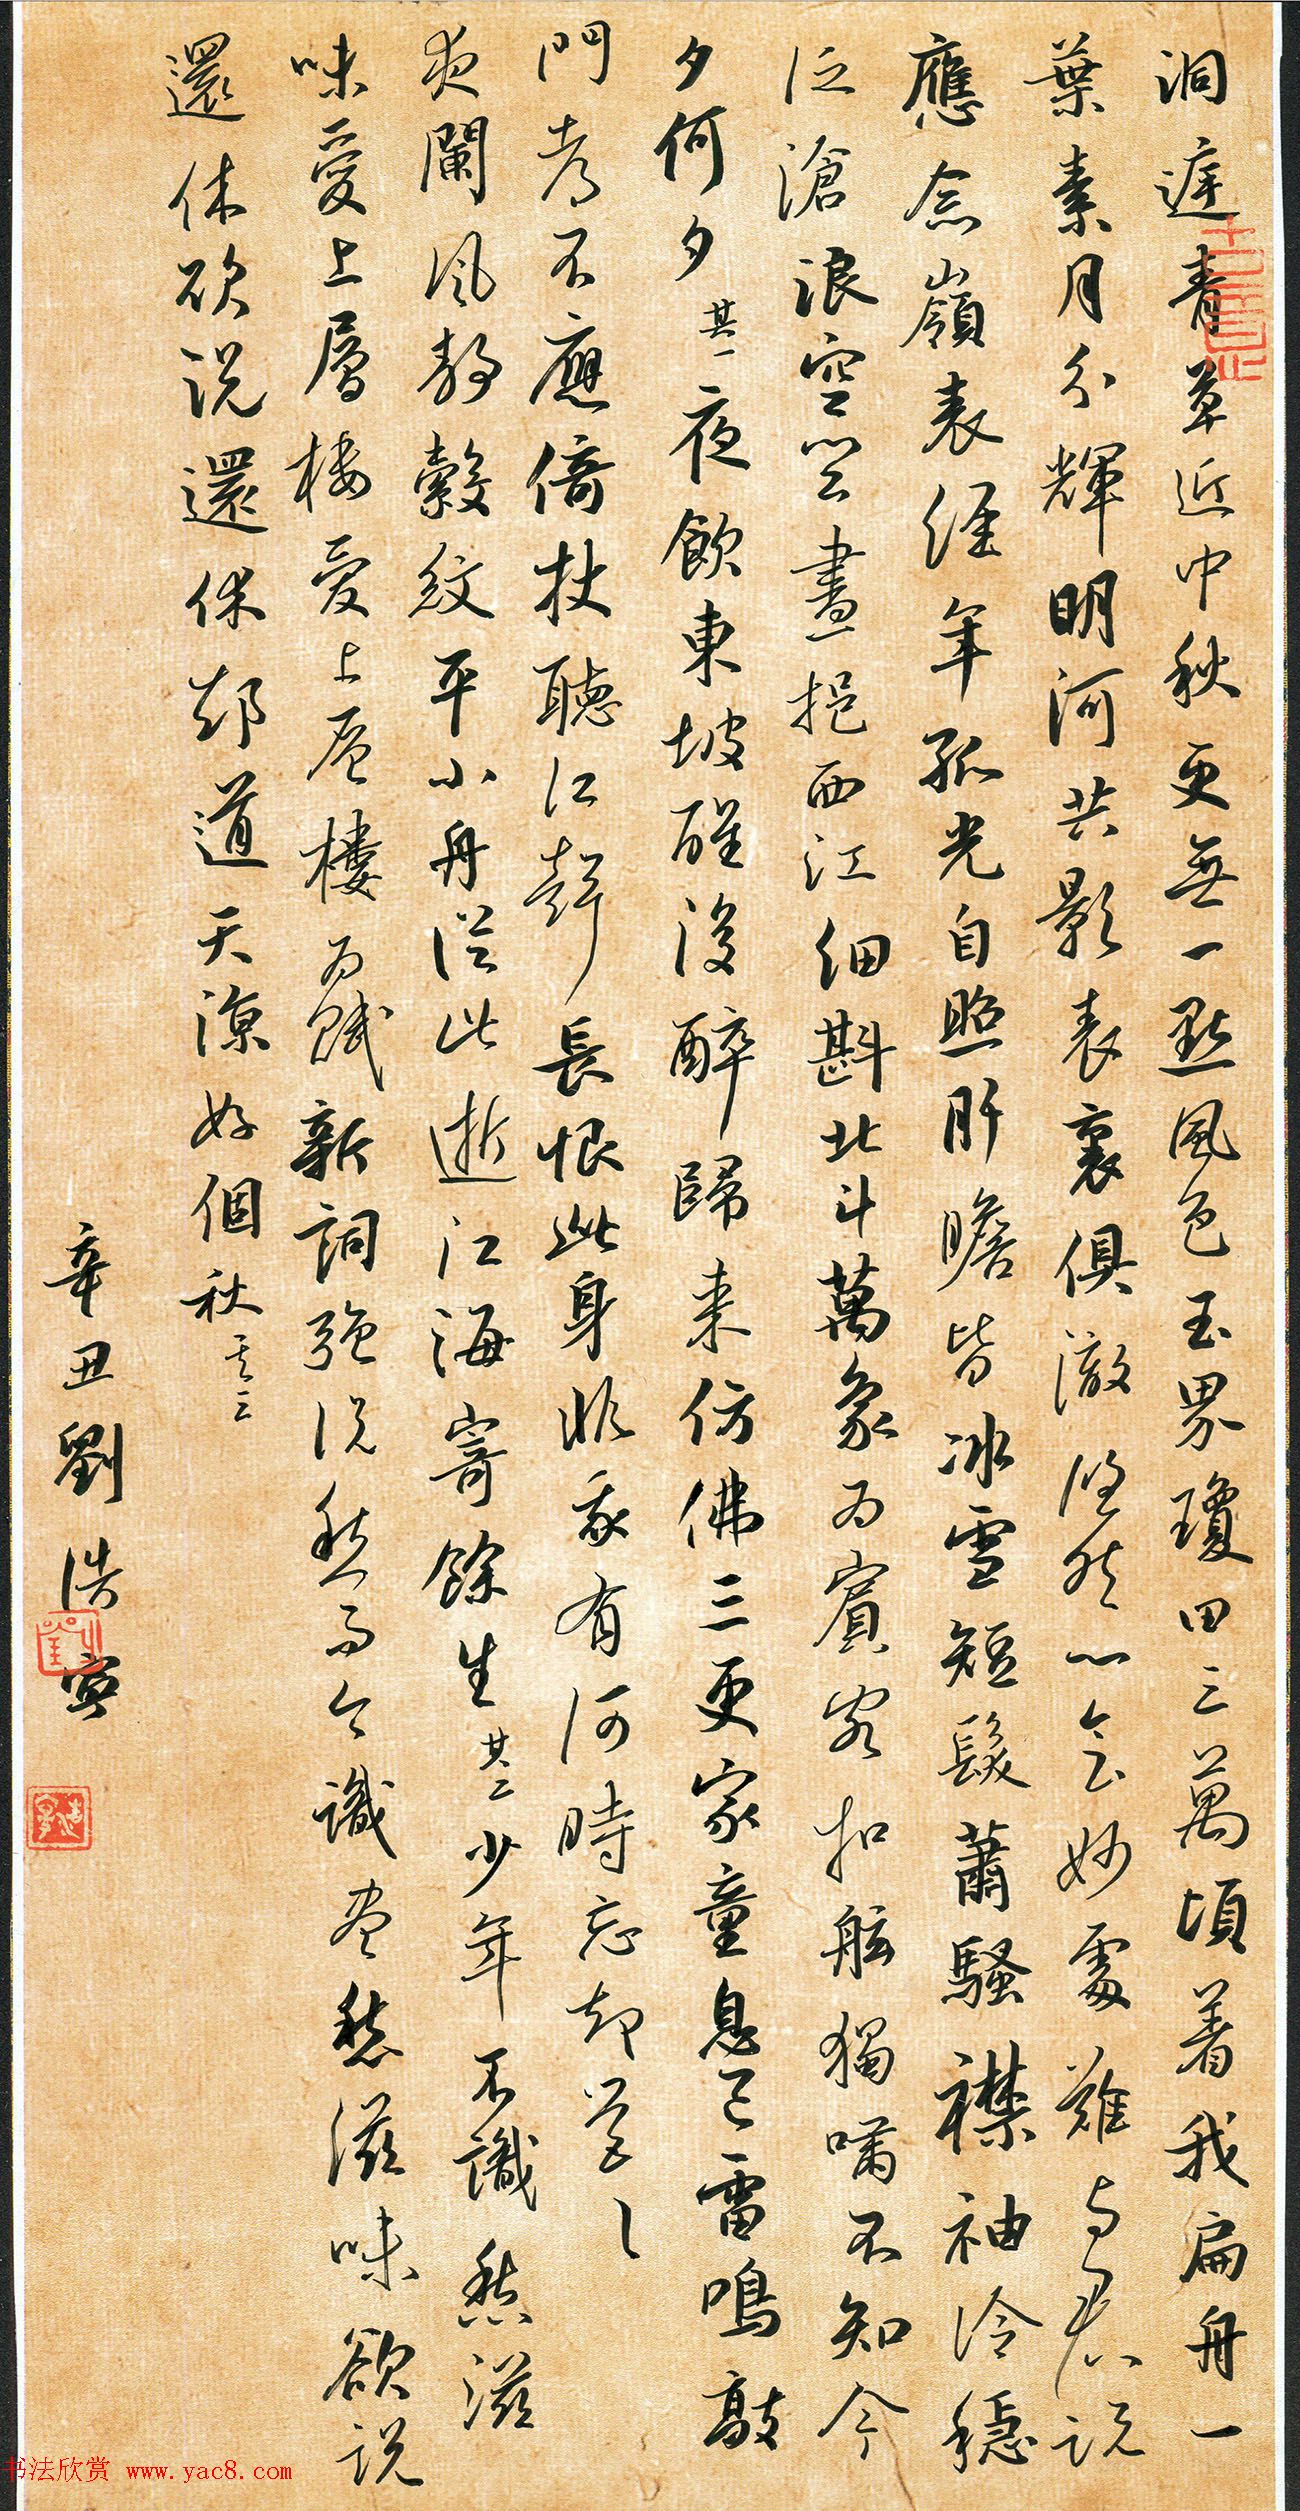 洞庭青草近中秋更無一點風色玉界瓊田三萬頃着我扁舟一
葉素月分輝明河共影表裏俱澈悠然心會妙處難與君說
應念嶺表經年孤光自照肝膽皆冰雪短髮蕭騷襟袖冷穩
泛滄浪空闊盡挹西江細斟北斗萬象為賓客扣舷獨嘯不知今
夕何夕 其一 夜飲東坡醒復醉歸來仿佛三更家童鼻息已雷鳴敲
門考不應倚杖聽江聲長恨此身非我有何時忘卻營營
夜闌風靜縠紋平小舟從此逝江海寄餘生 其二 少年不識愁滋
味愛上層樓愛上層樓為賦新詞強說愁而今識盡愁滋味欲說
還休欲說還休卻道天涼好個秋 其三
辛丑劉浩寅
书法欣赏 www.yac8.com